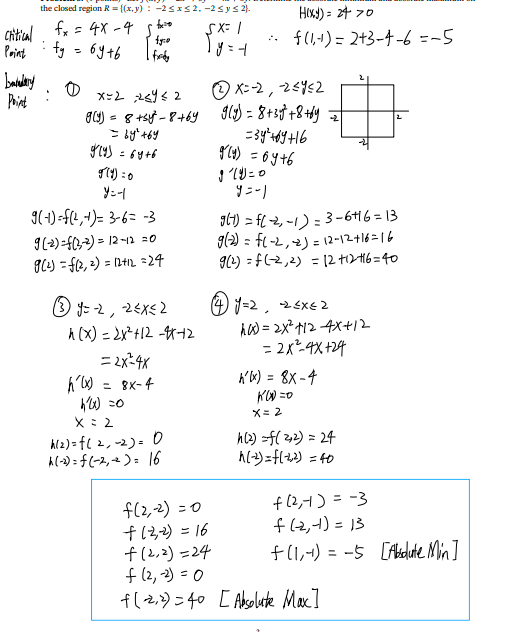 the closed region R = {(x, y) : −2 ≤ x ≤ 2, −2 ≤ y ≤ 2}.
H(x,y) = 24 > 0
Critical Point :
fx = 4x - 4
fy = 6y + 6
fx=0
fy=0
x = 1
y = -1
∴ f(1,-1) = 2+3-4-6 = -5
boundary Point :
① x=2 -2≤y≤2
g(y) = 8+3y²-8+6y
= 3y²+6y
g'(y) = 6y+6
g'(y)=0
y=-1
g(-1)=f(2,-1)= 3-6= -3
g(-2)=f(2,-2) = 12-12 =0
g(2) = f(2,2) = 12+12 =24
② x=-2, -2≤y≤2
g(y) = 8+3y²+8+6y
=3y²+6y+16
g'(y) = 6y+6
g'(y)=0
y=-1
g(-1) = f(-2,-1) = 3-6+16 = 13
g(-2) = f(-2,-2) = 12-12+16=16
g(2) = f(-2,2) = 12+12+16=40
2
-2
2
-2
③ y=-2, -2≤x≤2
h(x) = 2x²+12-4x-12
= 2x²-4x
h'(x) = 8x-4
h'(x) =0
x = 2
h(2)=f(2,-2)= 0
h(-2)=f(-2,-2)= 16
④ y=2, -2≤x≤2
h(x) = 2x²+12-4x+12
= 2x²-4x+24
h'(x) = 8x-4
h'(x)=0
x=2
h(2) =f(2,2) = 24
h(-2)=f(-2,2) = 40
f(2,-2) = 0
f(-2,-2) = 16
f(2,2) = 24
f(2,-2) = 0
f(-2,2) = 40 [Absolute Max]
f(2,-1) = -3
f(-2,-1) = 13
f(1,-1) = -5 [Absolute Min]